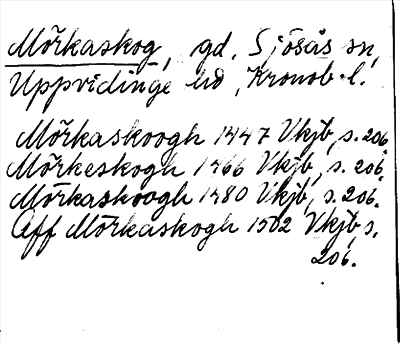 Mörkaskog, gd, Sjösås sn,
Uppvidinge hd, Kronob. l.
Mörkaskoogh 1447 Vkjb, s. 206.
Mörkeskogh 1466 Vkjb, s. 206.
Mörkaskoogh 1480 Vkjb, s. 206.
Aff Mörkaskogh 1502 Vkjb, s.
206.